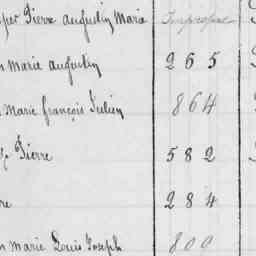 Pierre Augustin Marie
Marie Augustin 265
Marie françois Julien 864
Pierre 582
284
Marie Louis Joseph 809